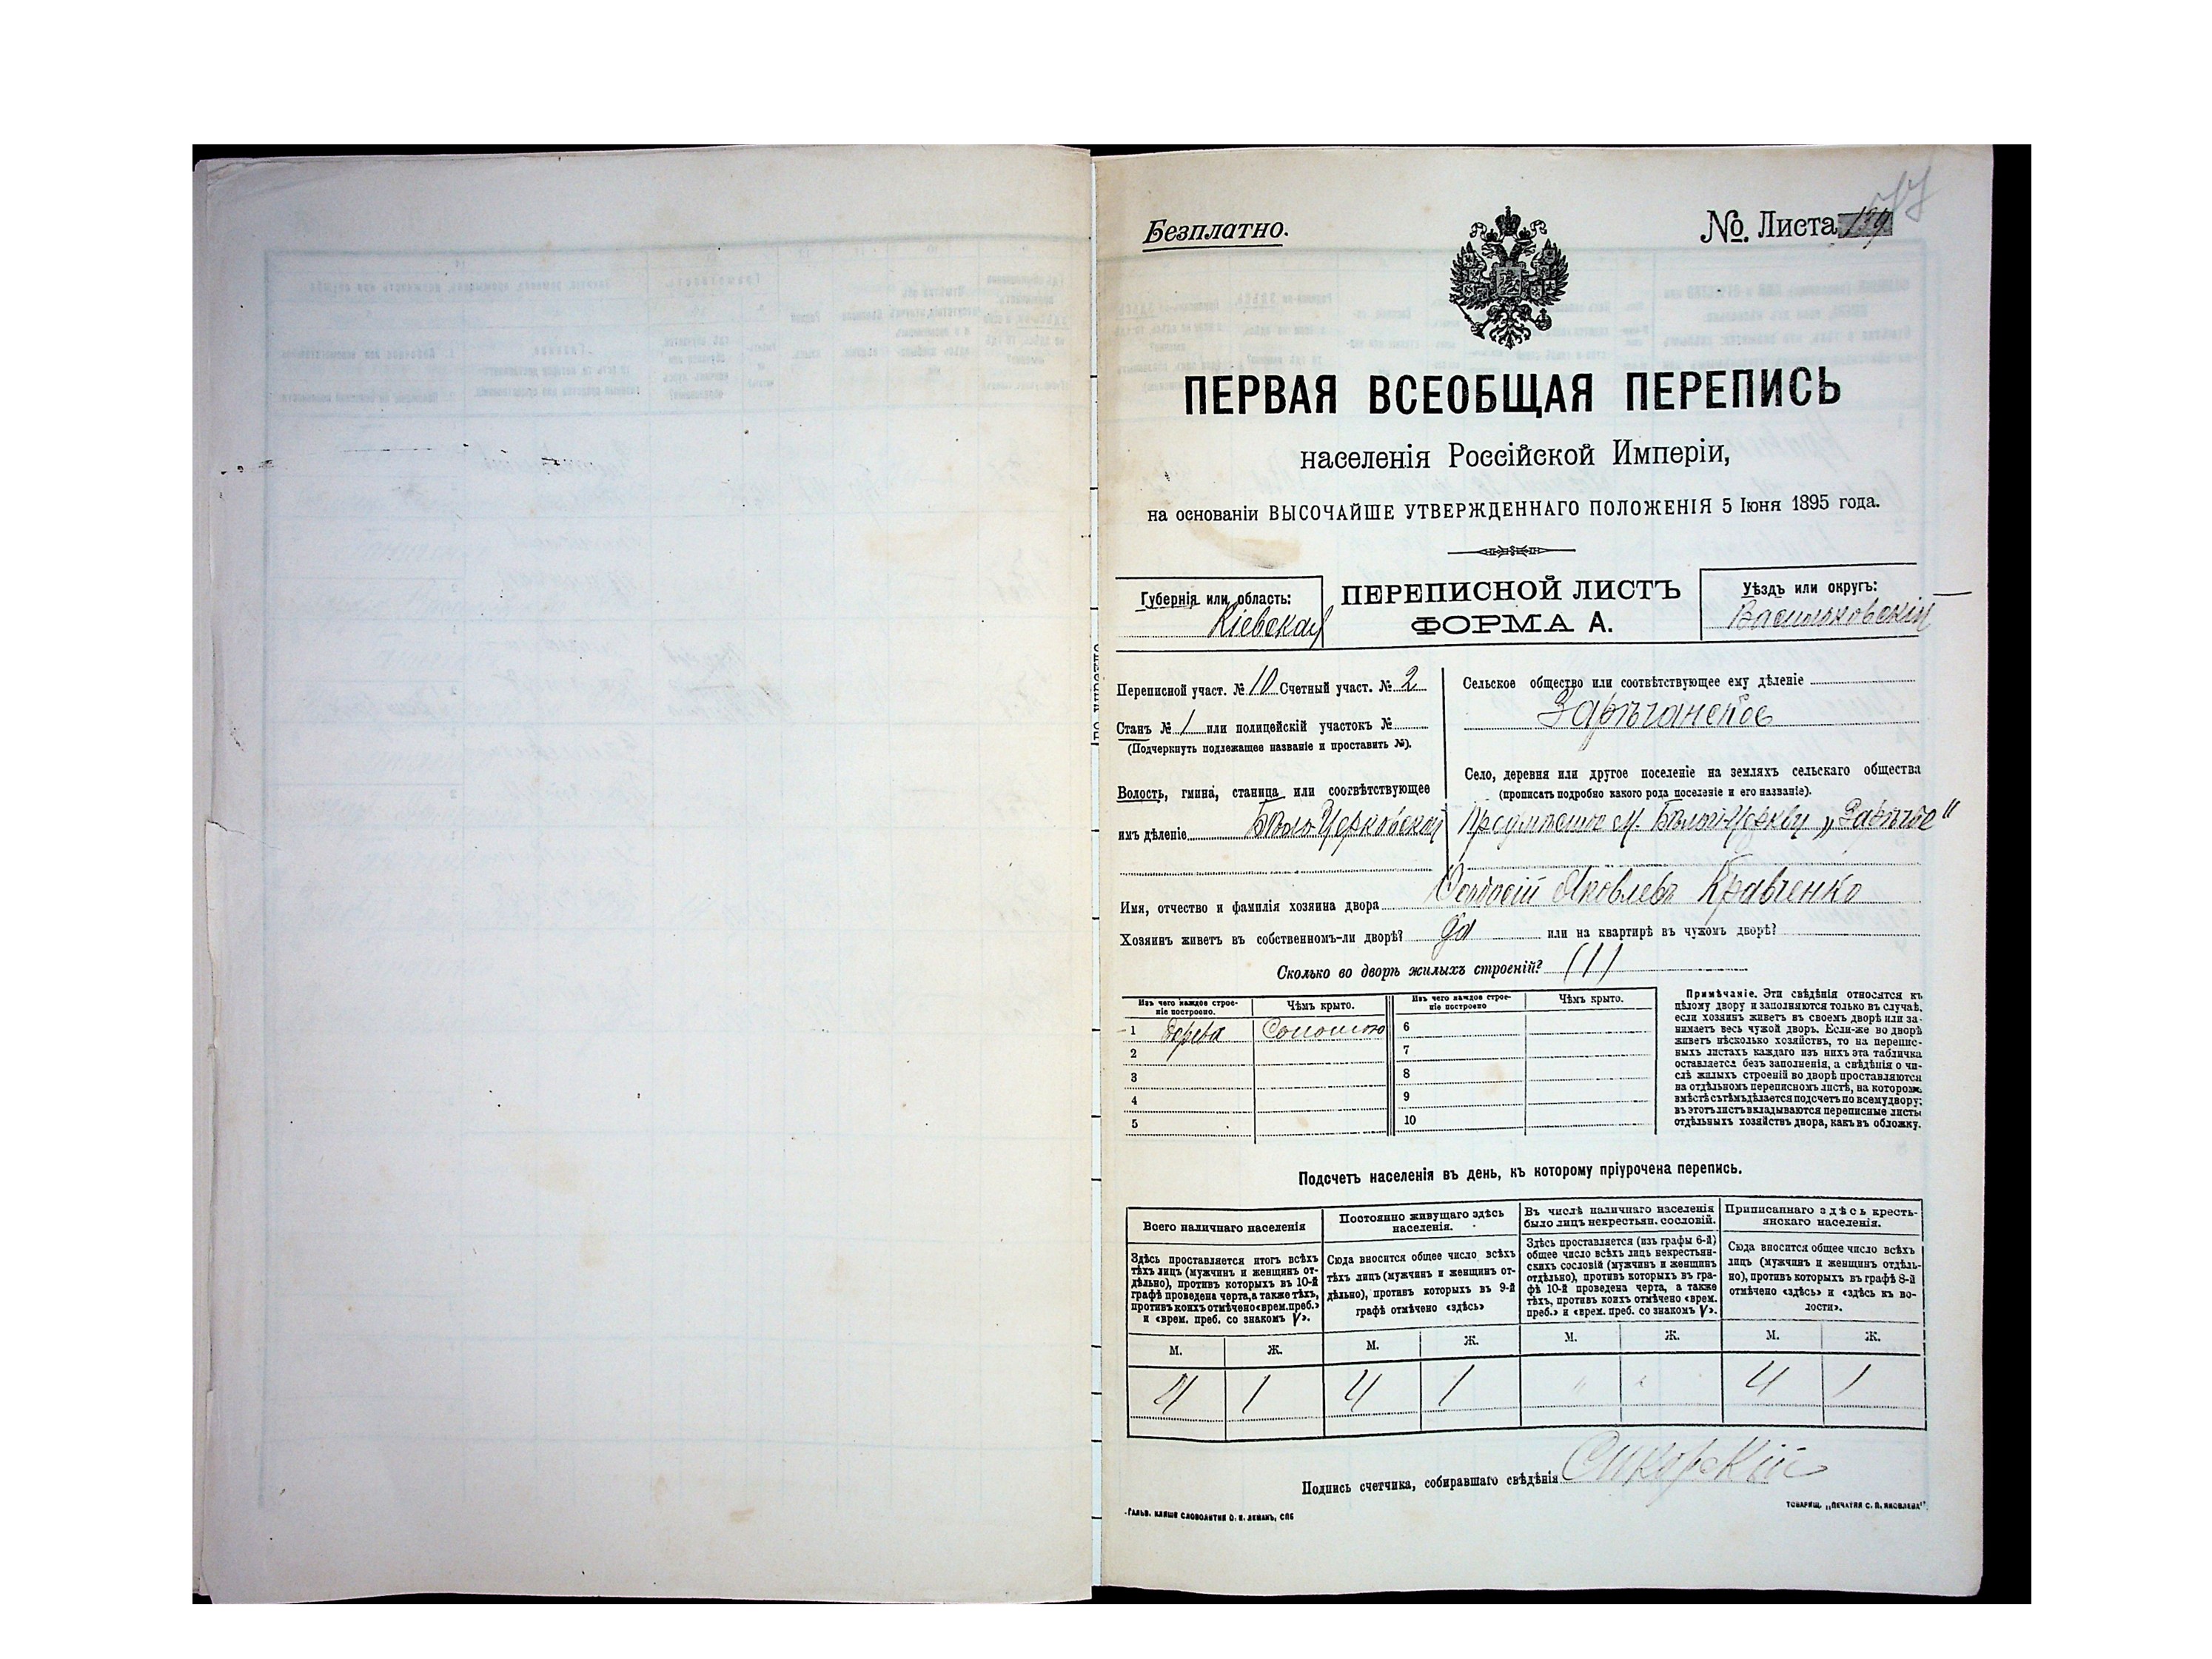 Безплатно.
№ Листа 199
ПЕРВАЯ ВСЕОБЩАЯ ПЕРЕПИСЬ
населенія Россійской Имперіи,
на основаніи ВЫСОЧАЙШЕ УТВЕРЖДЕННАГО ПОЛОЖЕНІЯ 5 Іюня 1895 года.
Губернія или область:
Кіевская
ПЕРЕПИСНОЙ ЛИСТЪ
ФОРМА А.
Уѣздъ или округъ:
Васильковскій
Переписной участ. № 10 Счетный участ. № 2
Станъ № 1 или полицейскій участокъ №
(Подчеркнуть подлежащее названіе и проставить №).
Волость, гмина, станица или соотвѣтствующее
имъ дѣленіе Бѣло-Церковская
Сельское общество или соотвѣтствующее ему дѣленіе
Зарѣчанское
Село, деревня или другое поселеніе на земляхъ сельскаго общества
(прописать подробно какого рода поселеніе и его названіе).
Предмѣстье м. Бѣлой-Церкви „Зарѣчье"
Имя, отчество и фамилія хозяина двора Ѳеодосій Яковлевъ Кравченко
Хозяинъ живетъ въ собственномъ-ли дворѣ? да или на квартирѣ въ чужомъ дворѣ?
Сколько во дворѣ жилыхъ строеній? (1)
Изъ чего каждое строе-
ніе построено.
Чѣмъ крыто.
Изъ чего каждое строе-
ніе построено
Чѣмъ крыто.
1 дерева Соломою 6
2 7
3 8
4 9
5 10
Примѣчаніе. Эти свѣдѣнія относятся къ
цѣлому двору и заполняются только въ случаѣ,
если хозяинъ живетъ въ своемъ дворѣ или за-
нимаетъ весь чужой дворъ. Если-же во дворѣ
живетъ нѣсколько хозяйствъ, то на перепис-
ныхъ листахъ каждаго изъ нихъ эта табличка
оставляется безъ заполненія, а свѣдѣнія о чи-
слѣ жилыхъ строеній во дворѣ проставляются
на отдѣльномъ переписномъ листѣ, на которомъ
вмѣстѣ съ тѣмъ дѣлается подсчетъ по всему двору;
въ этотъ листъ вкладываются переписные листы
отдѣльныхъ хозяйствъ двора, какъ въ обложку.
Подсчетъ населенія въ день, къ которому пріурочена перепись.
Всего наличнаго населенія
Здѣсь проставляется итогъ всѣхъ
тѣхъ лицъ (мужчинъ и женщинъ от-
дѣльно), противъ которыхъ въ 10-й
графѣ проведена черта, а также тѣхъ,
противъ коихъ отмѣчено «врем. преб.»
и «врем. преб. со знакомъ V».
Постоянно живущаго здѣсь
населенія.
Сюда вносится общее число всѣхъ
тѣхъ лицъ (мужчинъ и женщинъ от-
дѣльно), противъ которыхъ въ 9-й
графѣ отмѣчено «здѣсь»
Въ числѣ наличнаго населенія
было лицъ некрестьян. сословій.
Здѣсь проставляется (изъ графы 6-й)
общее число всѣхъ лицъ некрестьян-
скихъ сословій (мужчинъ и женщинъ
отдѣльно), противъ которыхъ въ гра-
фѣ 10-й проведена черта, а также
тѣхъ, противъ коихъ отмѣчено «врем.
преб.» и «врем. преб. со знакомъ V».
Приписаннаго здѣсь кресть-
янскаго населенія.
Сюда вносится общее число всѣхъ
лицъ (мужчинъ и женщинъ отдѣль-
но), противъ которыхъ въ графѣ 8-й
отмѣчено «здѣсь» и «здѣсь въ во-
лости».
М. Ж. М. Ж. М. Ж. М. Ж.
4 1 4 1 " " 4 1
Подпись счетчика, собиравшаго свѣдѣнія Сикорскій
ГАЛЬВ. КЛИШЕ СЛОВОЛИТНИ О. И. ЛЕМАНЪ, СПБ
ТОВАРИЩ. „ПЕЧАТНЯ С. П. ЯКОВЛЕВА".